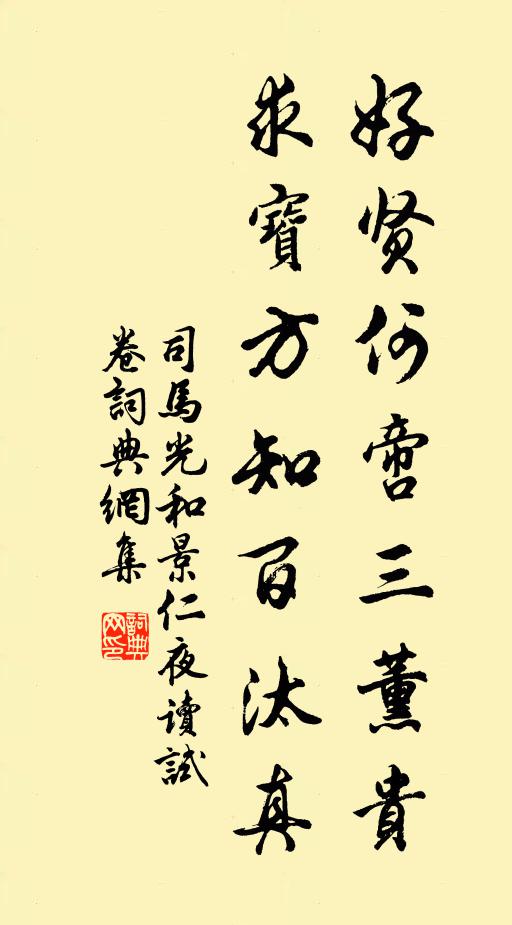 好贤何啻三薰貴
求寶方知百汰真
司馬光和景仁夜读試
卷詞典網集
詞典网印